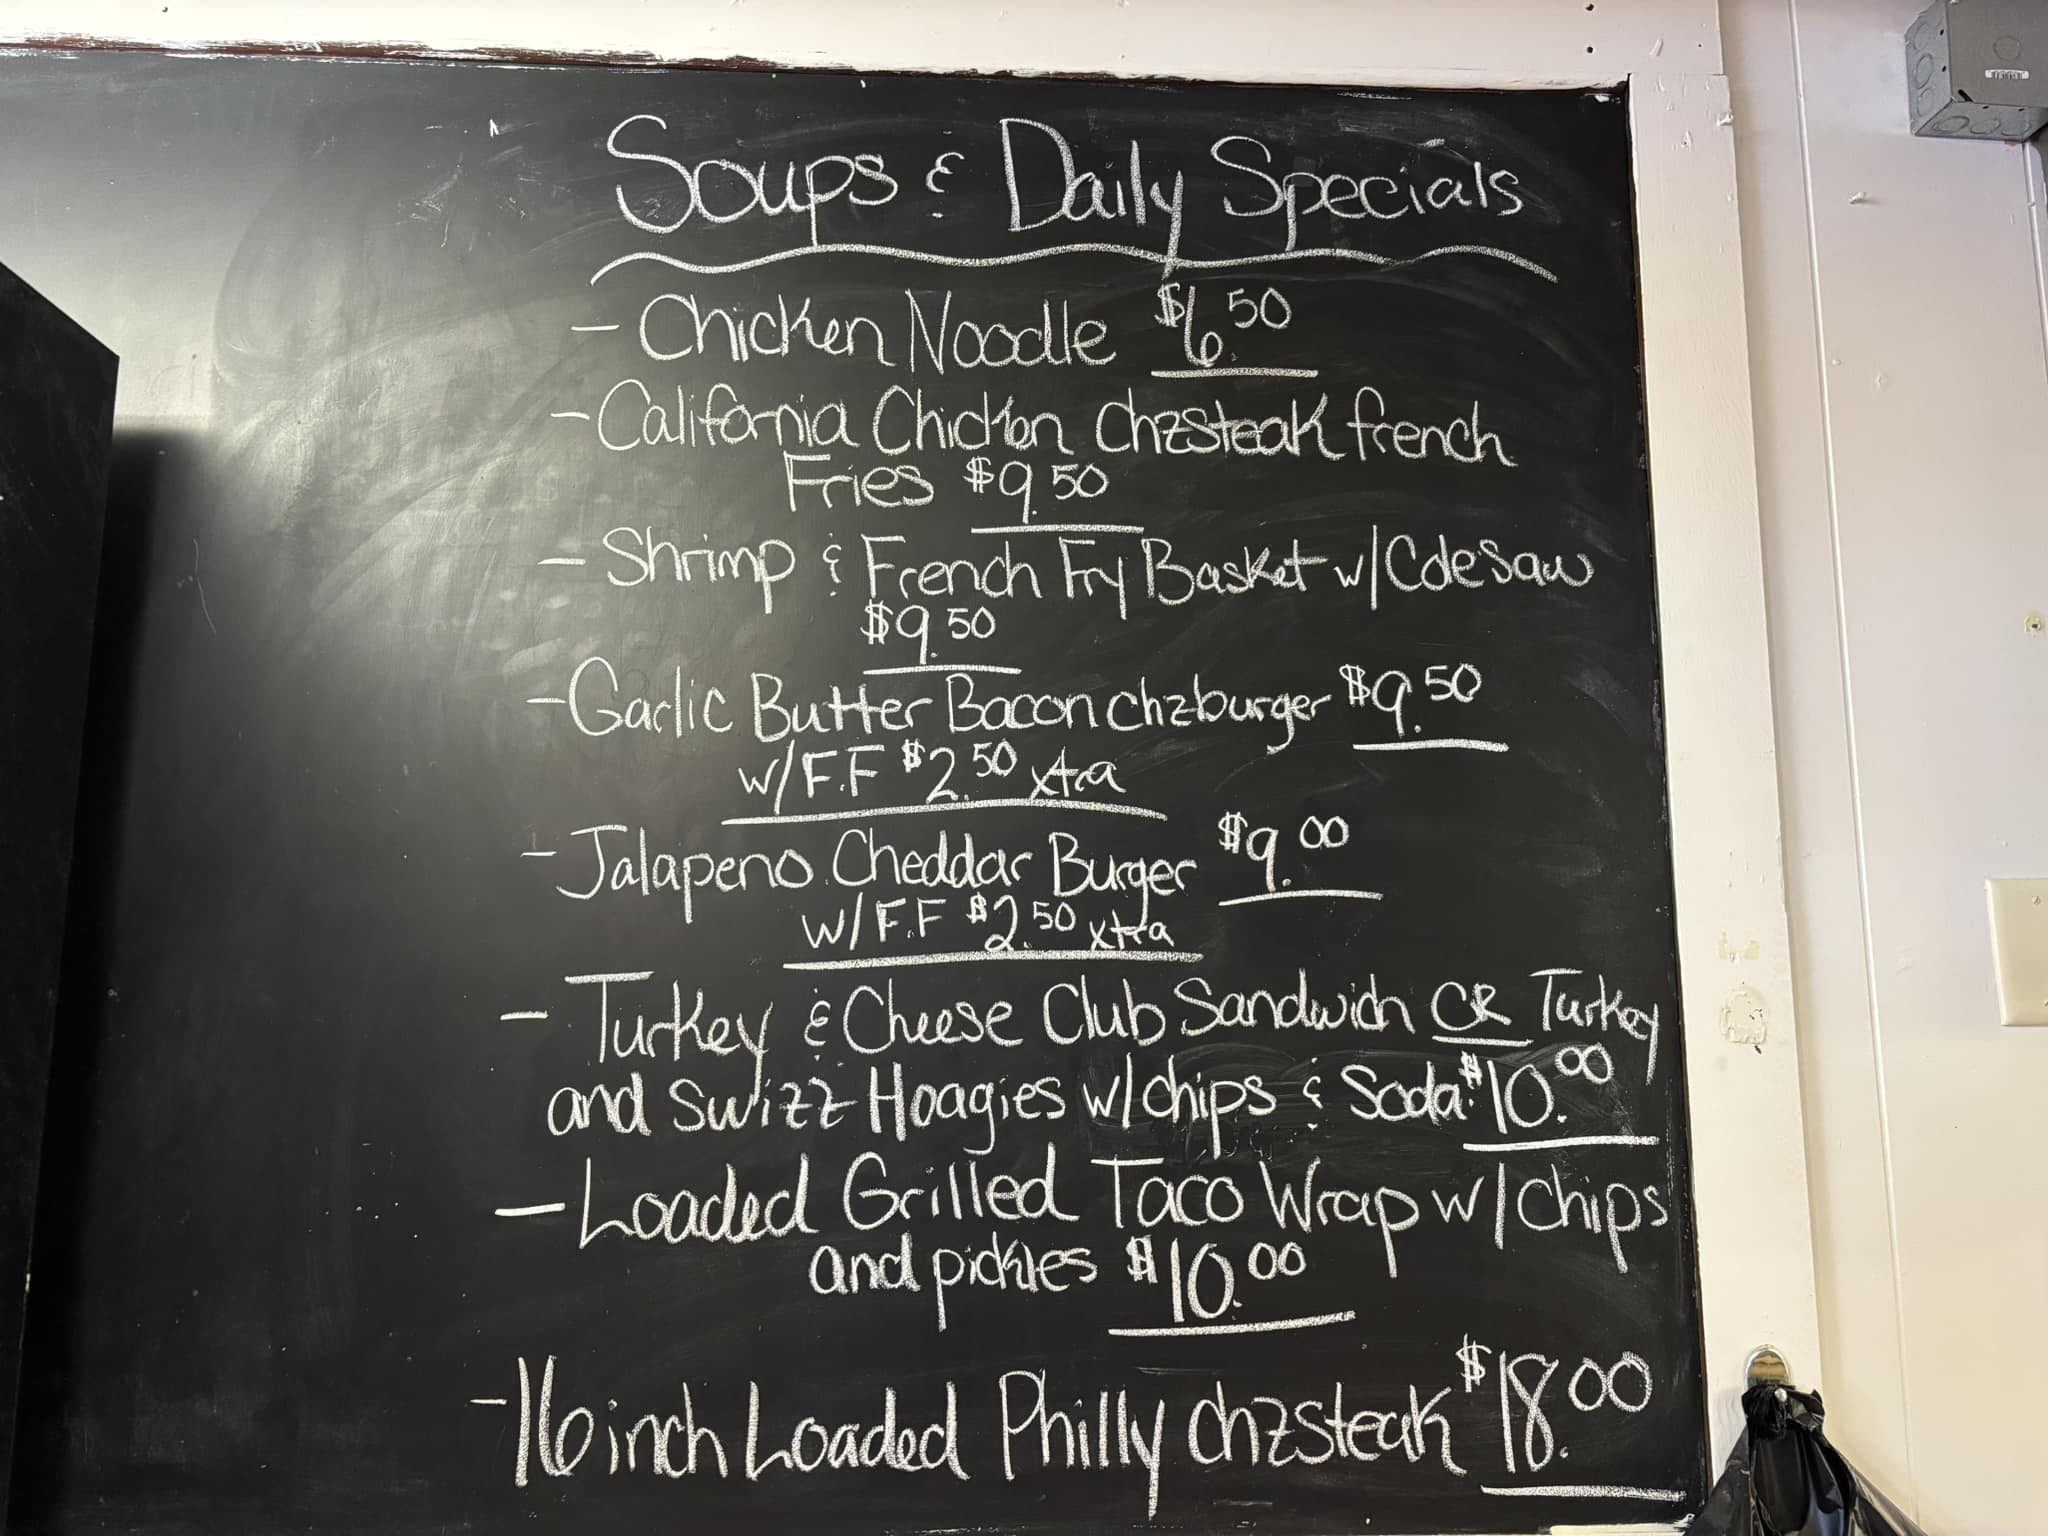 Soups & Daily Specials
- Chicken Noodle $6.50
- California Chicken Chzsteak french
Fries $9.50
- Shrimp & French Fry Basket w/Coleslaw
$9.50
- Garlic Butter Bacon chzburger $9.50
w/F.F $2.50 xtra
- Jalapeno Cheddar Burger $9.00
w/F.F $2.50 xtra
- Turkey & Cheese Club Sandwich OR Turkey
and Swizz Hoagies w/chips & Soda $10.00
- Loaded Grilled Taco Wrap w/chips
and pickles $10.00
- 16 inch Loaded Philly chzsteak $18.00